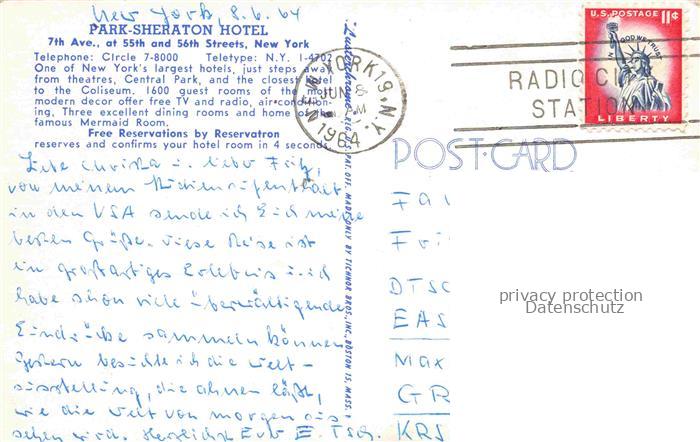 New York, 8.6.64
PARK-SHERATON HOTEL
7th Ave., at 55th and 56th Streets, New York
Telephone: CIrcle 7-8000 Teletype: N.Y. 1-4702
One of New York's largest hotels, just steps away
from theatres, Central Park, and the closest hotel
to the Coliseum. 1600 guest rooms of the most
modern decor offer free TV and radio, air-condition-
ing, Three excellent dining rooms and home of the
famous Mermaid Room.
Free Reservations by Reservatron
reserves and confirms your hotel room in 4 seconds.
Liebe Christa u. lieber Fritz,
von meinem Studienaufenthalt
in den USA sende ich Euch meine
besten Grüße. Diese Reise ist
ein großartiges Erlebnis u. ich
habe schon viele überwältigende
Eindrücke sammeln können
Gestern besuchte ich die Welt-
ausstellung, die ahnen läßt,
wie die Welt von morgen aus-
sehen wird. Herzlichst Euer E. Tsch.
MADE ONLY BY TICHNOR BROS., INC., BOSTON 15, MASS.
NEW YORK 19, N.Y.
JUN 8
PM
1964
RADIO CITY
STATION
U.S. POSTAGE 11¢
IN GOD WE TRUST
LIBERTY
POST CARD
DTSC
EAS
Max
GR
KRS
privacy protection
Datenschutz